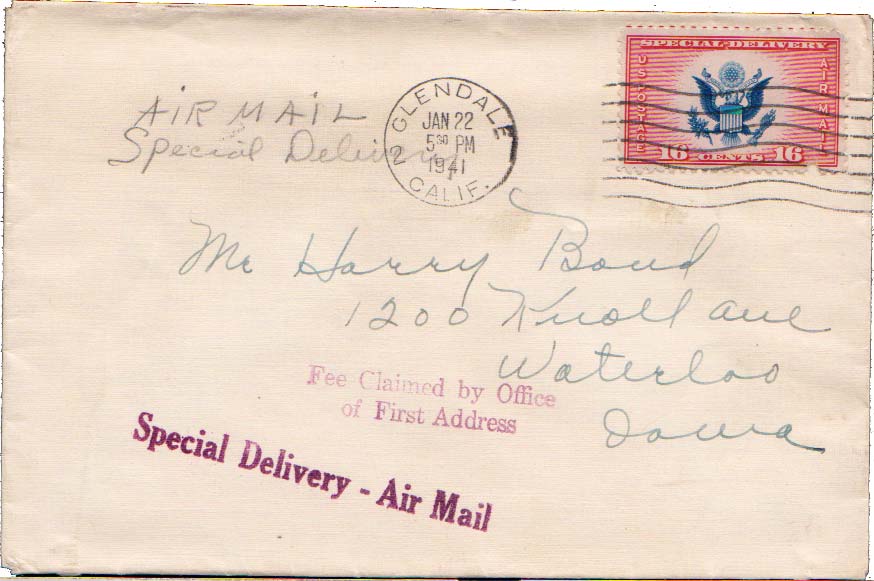 SPECIAL DELIVERY
U.S. POSTAGE
AIR MAIL
16 CENTS 16
GLENDALE
JAN 22
5 30 PM
1941
2 CALIF.
AIR MAIL
Special Delivery
Mr Harry Bond
1200 Knoll ave
Waterloo
Iowa
Fee Claimed by Office
of First Address
Special Delivery - Air Mail